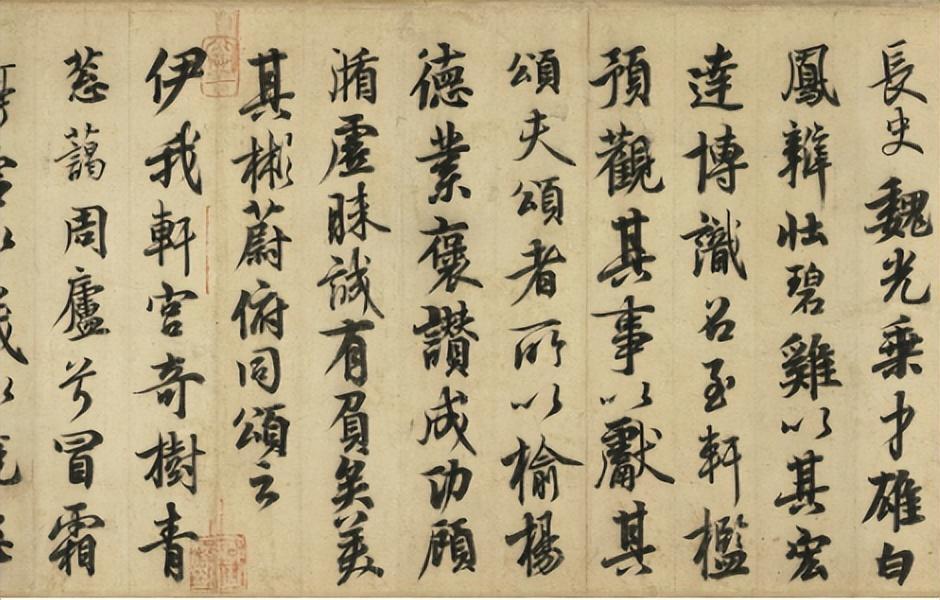 長史魏光乘才雄白
鳳辯壯碧雞以其宏
達博識召至軒檻
預觀其事以獻其
頌夫頌者所以榆楊
德業褒讚成功顧
循虛昧誠有負矣美
其彬蔚俯同頌云
伊我軒宮奇樹青
葱藹周廬兮冒霜